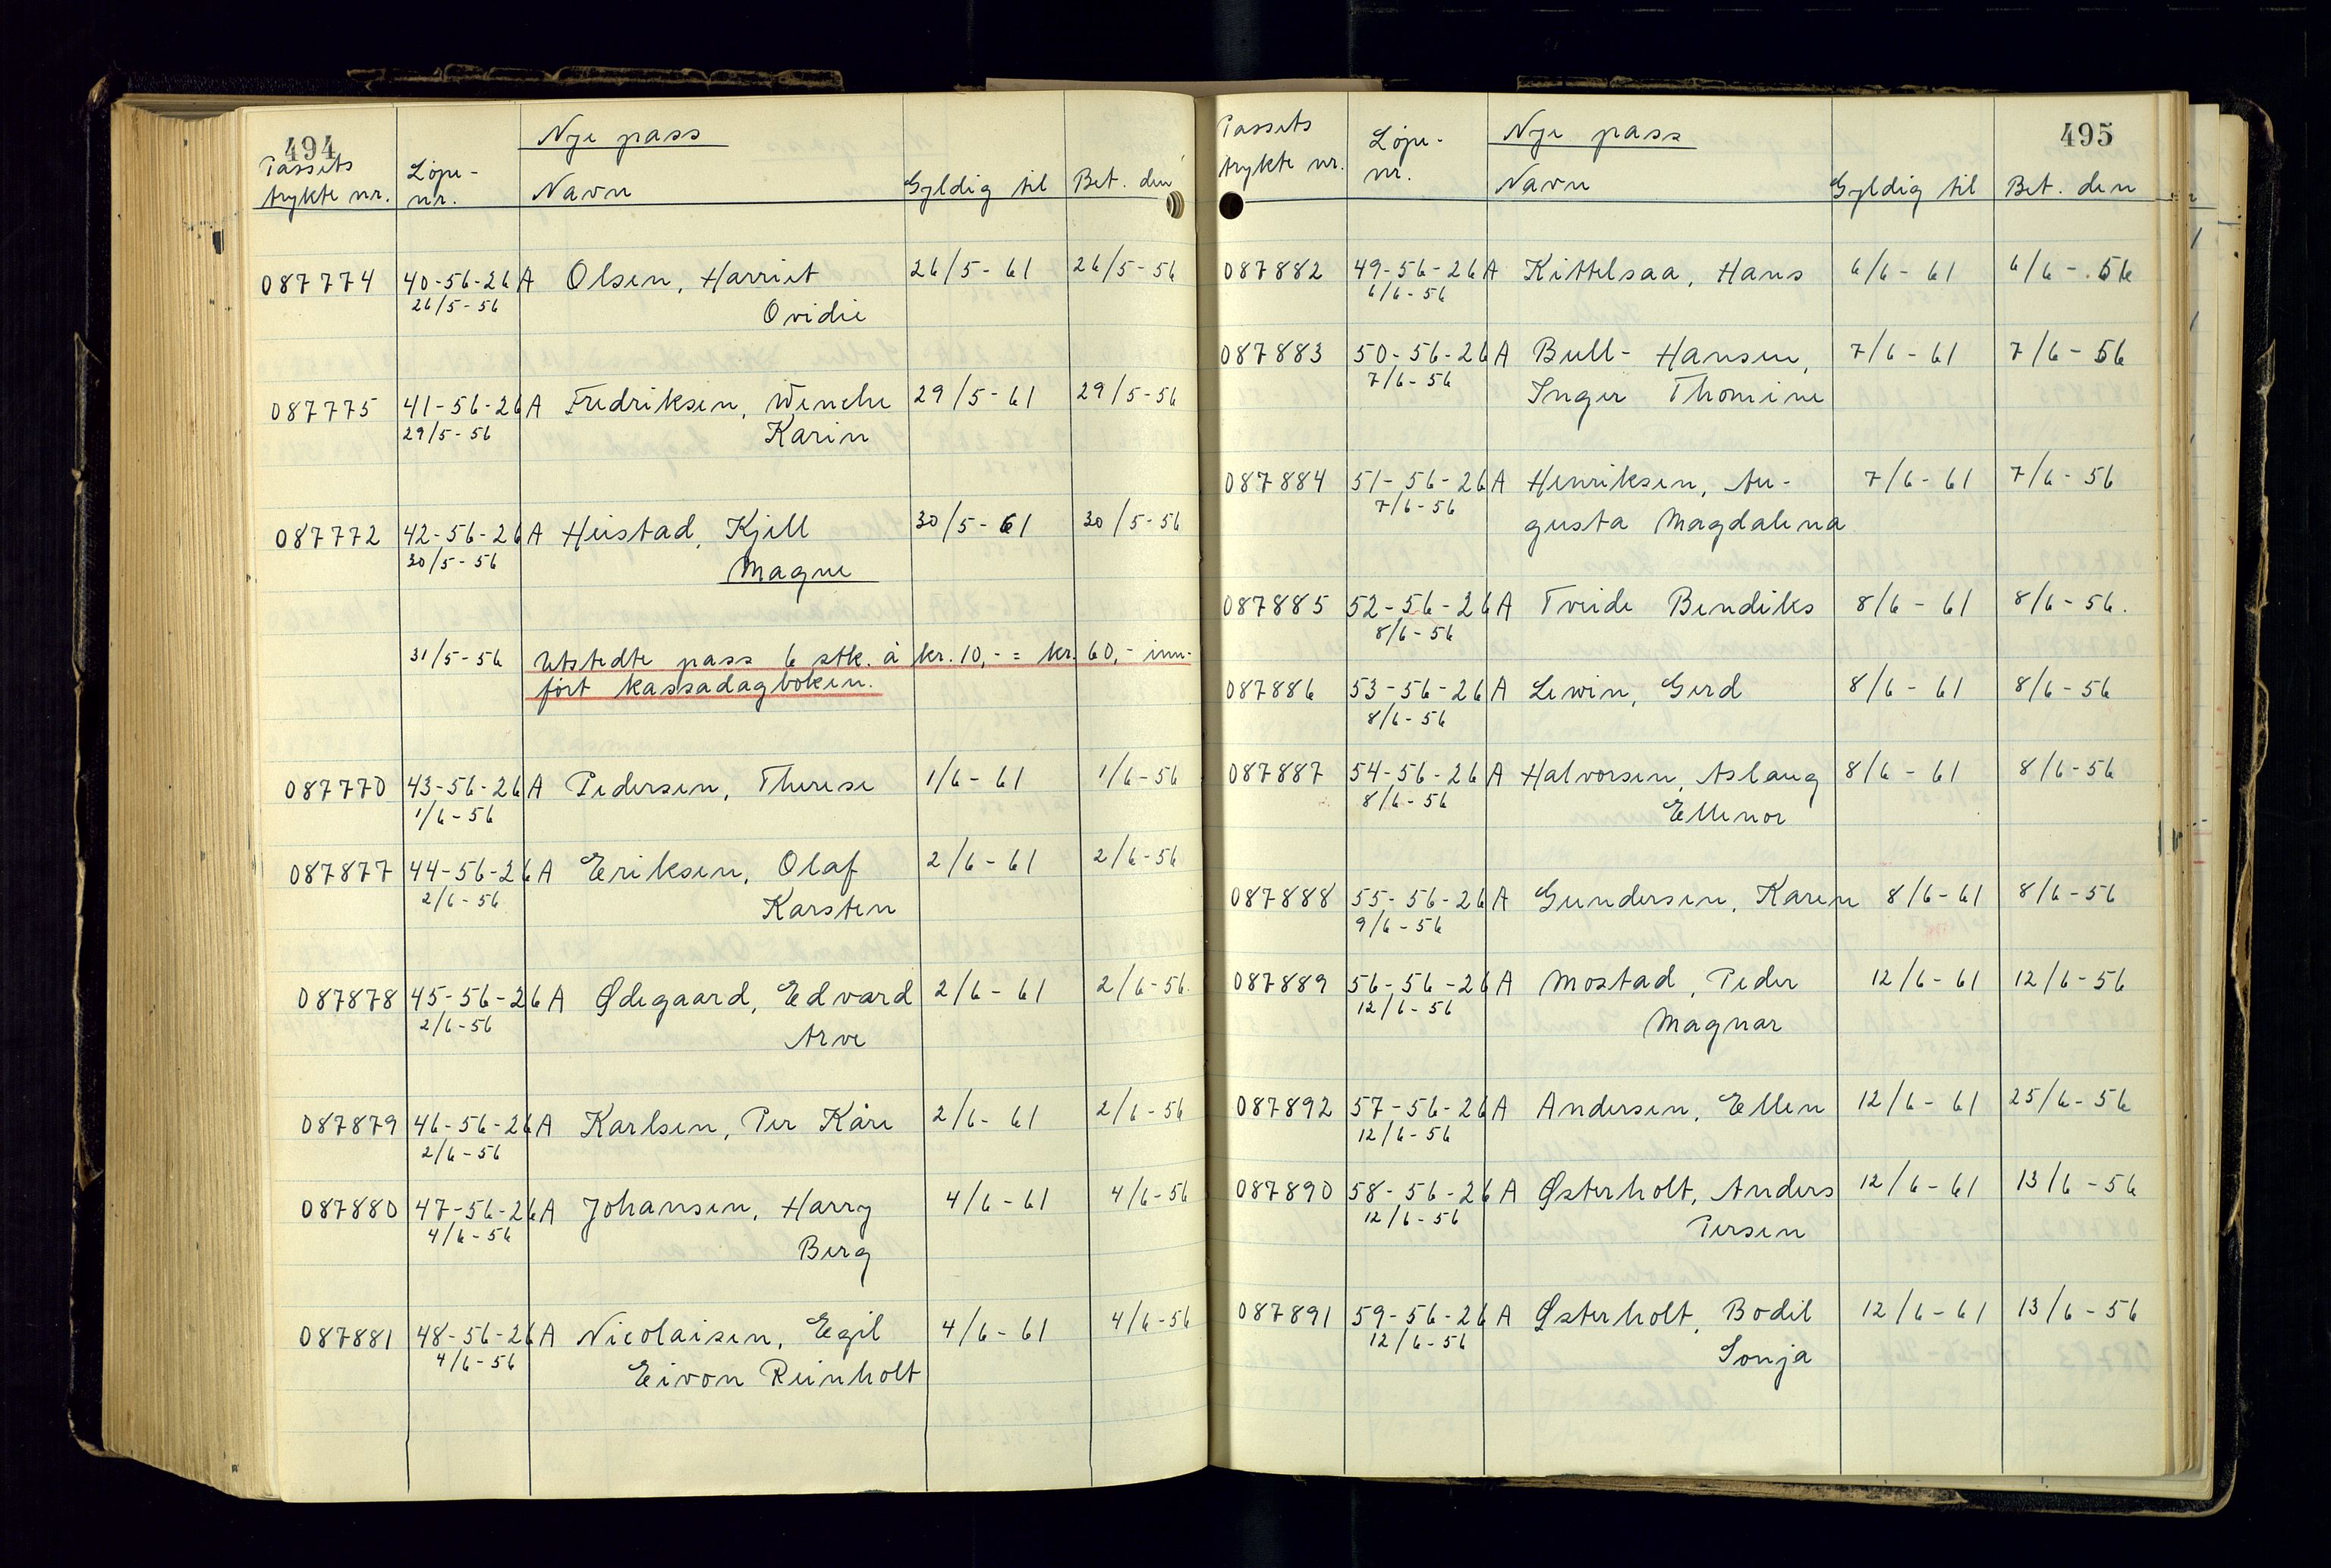 494
Nye pass
Passets Løpe-
trykte nr. nr. Navn Gyldig til Bet. den
087774 40-56-26A Olsen, Harriet 26/5-61 26/5-56
26/5-56 Ovidie
087775 41-56-26A Fredriksen, Wenche 29/5-61 29/5-56
29/5-56 Karin
087772 42-56-26A Heistad, Kjell 30/5-61 30/5-56
30/5-56 Magne
31/5-56 Utstedte pass 6 stk. à kr. 10,- = kr. 60,- inn-
ført kassadagboken.
087770 43-56-26A Pedersen, Therese 1/6-61 1/6-56
1/6-56
087877 44-56-26A Eriksen, Olaf 2/6-61 2/6-56
2/6-56 Karsten
087878 45-56-26A Ødegaard, Edvard 2/6-61 2/6-56
2/6-56 Arve
087879 46-56-26A Karlsen, Per Kåre 2/6-61 2/6-56
2/6-56
087880 47-56-26A Johansen, Harry 4/6-61 4/6-56
4/6-56 Berg
087881 48-56-26A Nicolaisen, Egil 4/6-61 4/6-56
4/6-56 Eivon Reinholt
495
Passets Løpe- Nye pass
trykte nr. nr. Navn Gyldig til Bet. den
087882 49-56-26A Kittelsaa, Hans 6/6-61 6/6-56
6/6-56
087883 50-56-26A Bull-Hansen, 7/6-61 7/6-56
7/6-56 Inger Thomine
087884 51-56-26A Henriksen, Au- 7/6-61 7/6-56
7/6-56 gusta Magdalena
087885 52-56-26A Tveide Bendiks 8/6-61 8/6-56.
8/6-56
087886 53-56-26A Lewin, Gerd 8/6-61 8/6-56
8/6-56
087887 54-56-26A Halvorsen, Aslaug 8/6-61 8/6-56
8/6-56 Ellenor
087888 55-56-26A Gundersen, Karen 8/6-61 8/6-56
9/6-56
087889 56-56-26A Mostad, Peder 12/6-61 12/6-56
12/6-56 Magnar
087892 57-56-26A Andersen, Ellen 12/6-61 25/6-56
12/6-56
087890 58-56-26A Østerholt, Anders 12/6-61 13/6-56
12/6-56 Persen
087891 59-56-26A Østerholt, Bodil 12/6-61 13/6-56
12/6-56 Sonja